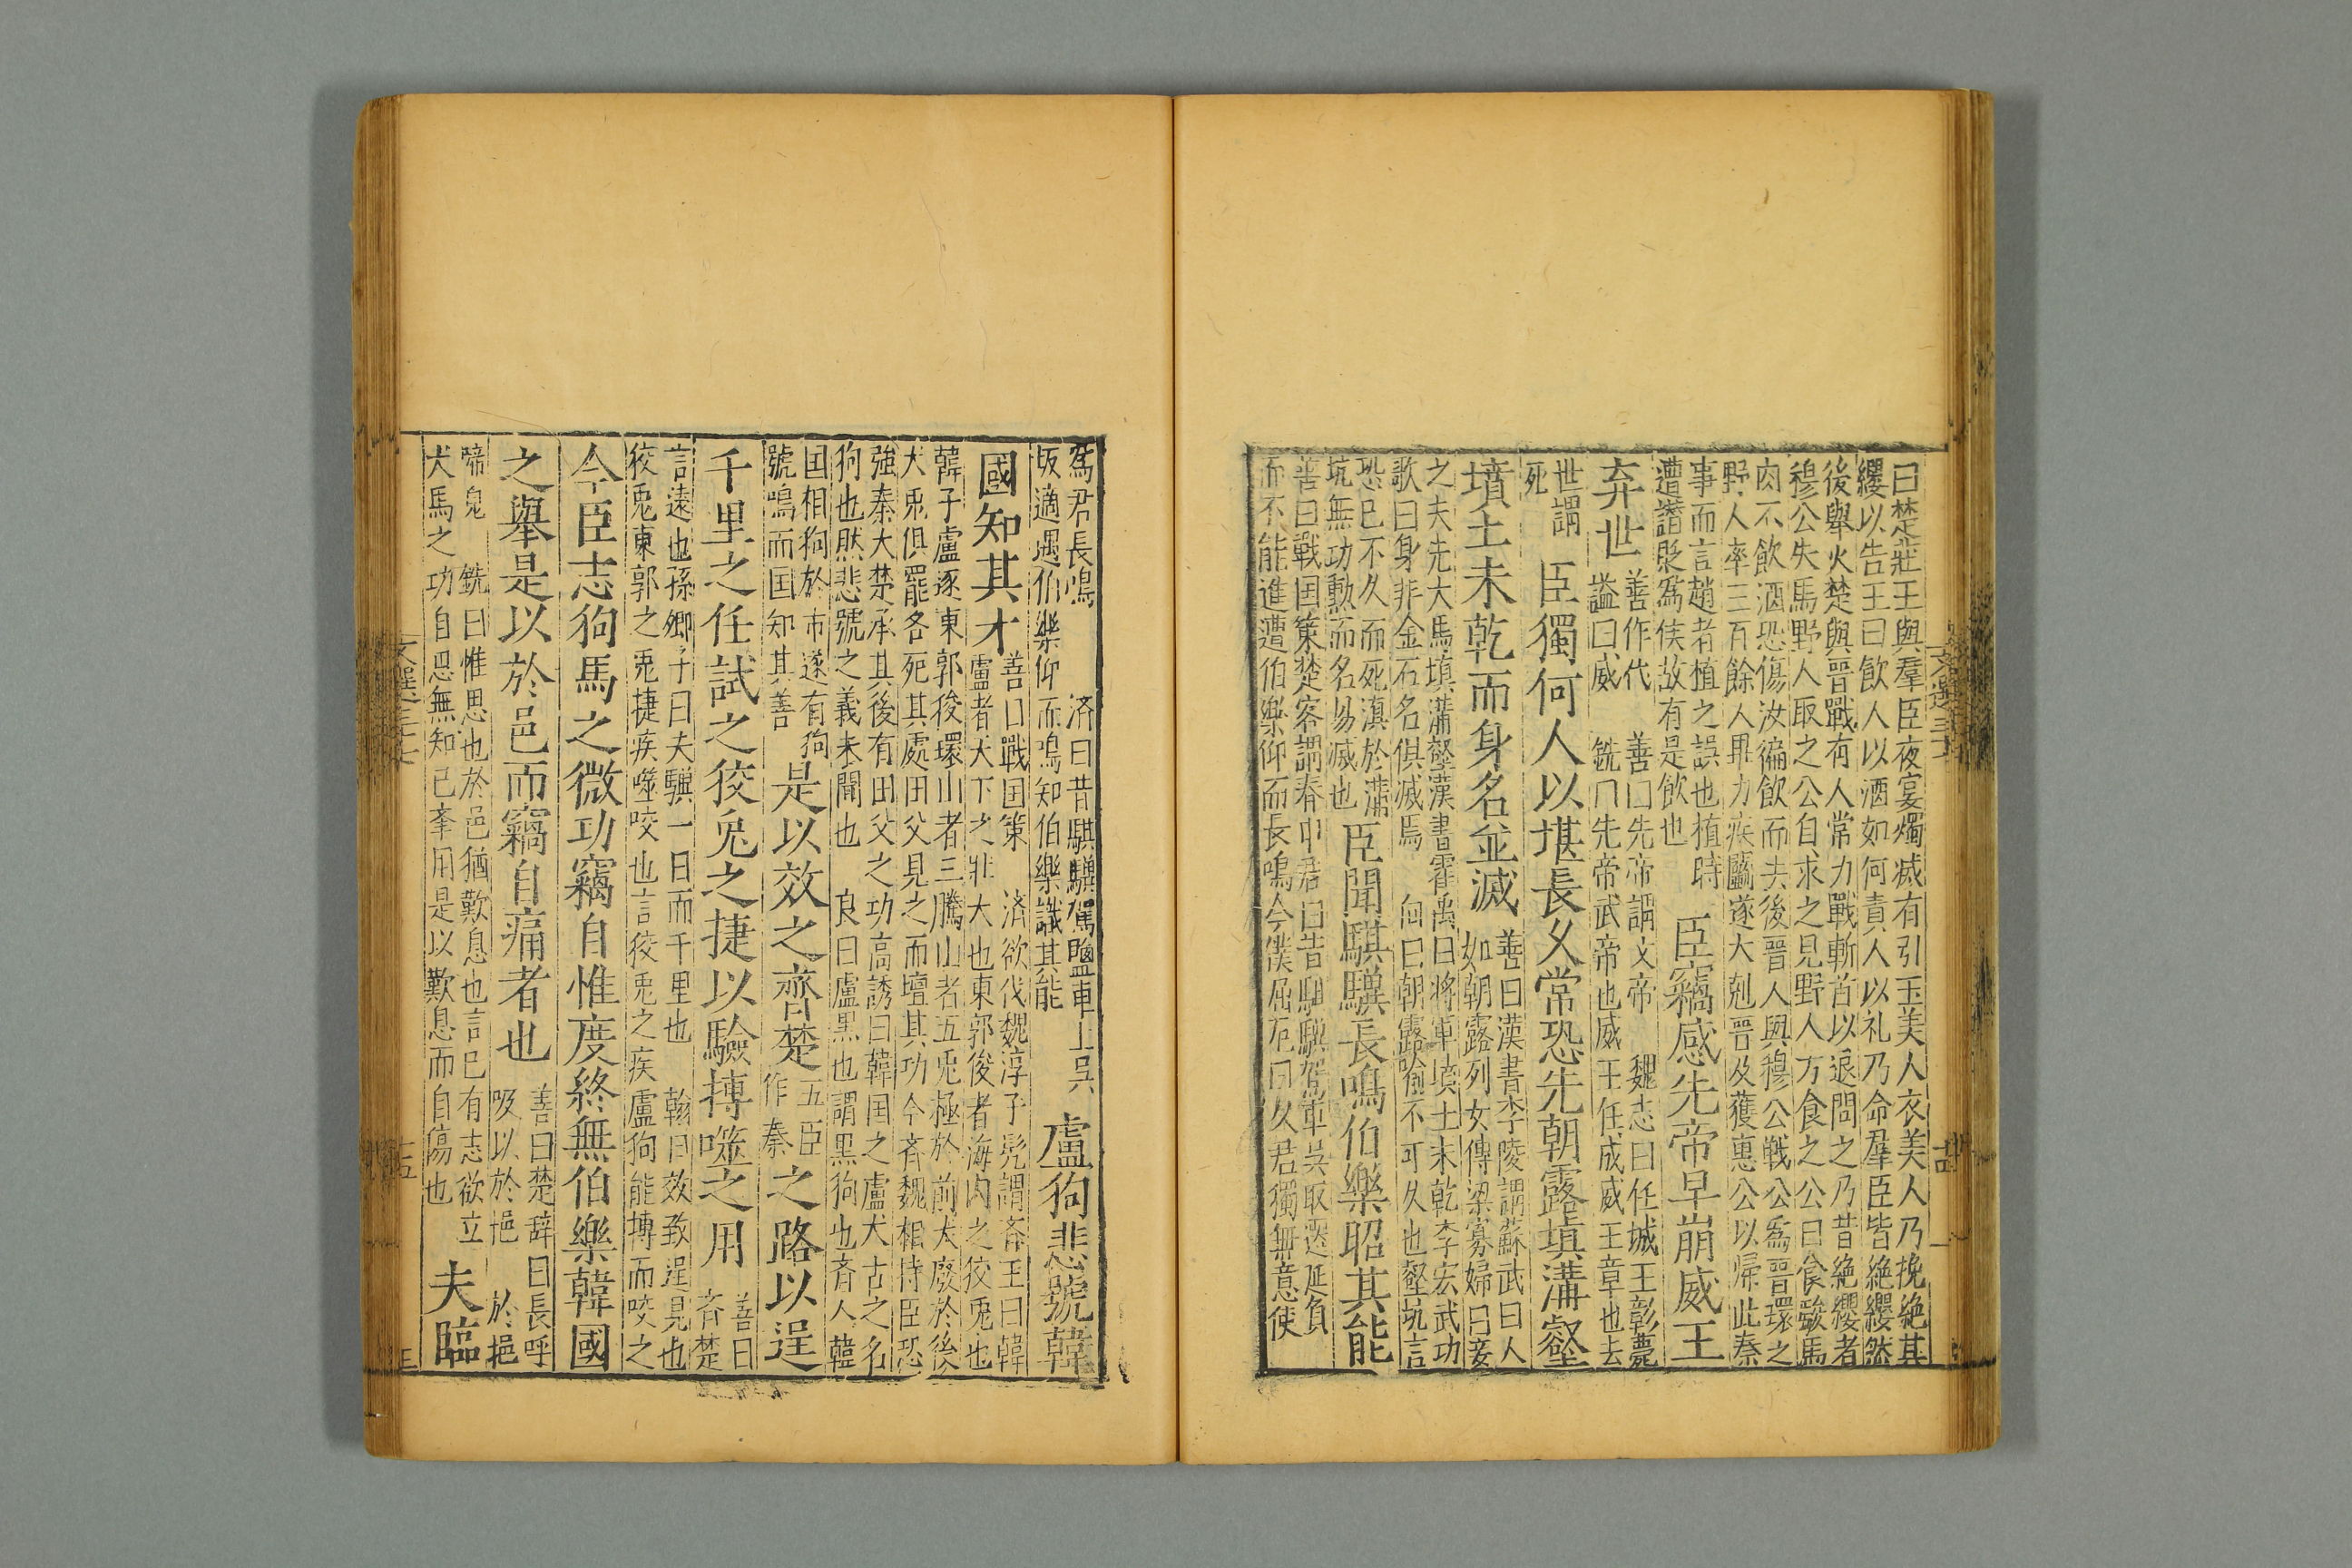 曰楚莊王與羣臣夜宴燭滅有引玉美人衣美人乃挽絶其
纓以告王王曰飲人以酒如何責人以礼乃命羣臣皆絶纓然
後舉火楚與晉戰有人常力戰斬首以退問之乃昔絶纓者
穆公失馬野人取之公自求之見野人方食之公曰食駿馬
肉不飲酒恐傷汝徧飲而去後晉人與穆公戰公爲晉環之
野人率三百餘人畢力疾鬭遂大剋晉及獲惠公以歸此秦
事而言趙者植之誤也植時
遭譖貶爲侯故有是飲也
臣竊感先帝早崩威王
弃世
善作代 善曰先帝謂文帝 魏志曰任城王彰薨
謚曰威 銑曰先帝武帝也威王任成威王章也去
世謂
死
臣獨何人以堪長久常恐先朝露填溝壑
墳土未乾而身名並滅
善曰漢書李陵謂蘇武曰人
如朝露列女傳梁寡婦曰妾
之夫先犬馬填溝壑漢書霍禹曰將軍墳土未乾李宏武功
歌曰身非金石名俱滅焉 向曰朝露喻不可久也壑坑言
恐已不久而死滇於溝
坑無功勳而名易滅也
臣聞騏驥長鳴伯樂昭其能
善曰戰国策楚客謂春申君曰昔騏驥駕車吴坂遷延負
而不能進遭伯樂仰而長鳴今僕屈厄日久君獨無意使
文選三十
十四
爲君長鳴 済曰昔騏驥駕鹽車上吴
坂適遇伯樂仰而鳴知伯樂識其能
盧狗悲號韓
國知其才
善曰戰国策 済欲伐魏淳于髡謂斉王曰韓
盧者天下之壯犬也東郭後者海内之狡兎也
韓子盧逐東郭後環山者三騰山者五兎極於前犬廢於後
犬兎俱罷各死其處田父見之而壇其功今斉魏相持臣恐
強秦大楚承其後有田父之功高誘曰韓国之盧犬古之名
狗也然悲號之義未聞也 良曰盧黑也謂黑狗也斉人韓
国相狗於市遂有狗
號鳴而国知其善
是以效之齊楚
五臣
作秦
之路以逞
千里之任試之狡兎之捷以驗搏噬之用
善曰
斉楚
言遠也孫卿子曰夫驥一日而千里也 翰曰效致逞見也
狡兎東郭之兎捷疾噬咬也言狡兎之疾盧狗能搏而咬之
今臣志狗馬之微功竊自惟度終無伯樂韓國
之舉是以於邑而竊自痛者也
善曰楚辞曰長呼
吸以於悒 於悒
啼皃 銑曰惟思也於邑猶歎息也言已有志欲立
犬馬之功自思無知已牽用是以歎息而自傷也
夫臨
文選三十七
十五